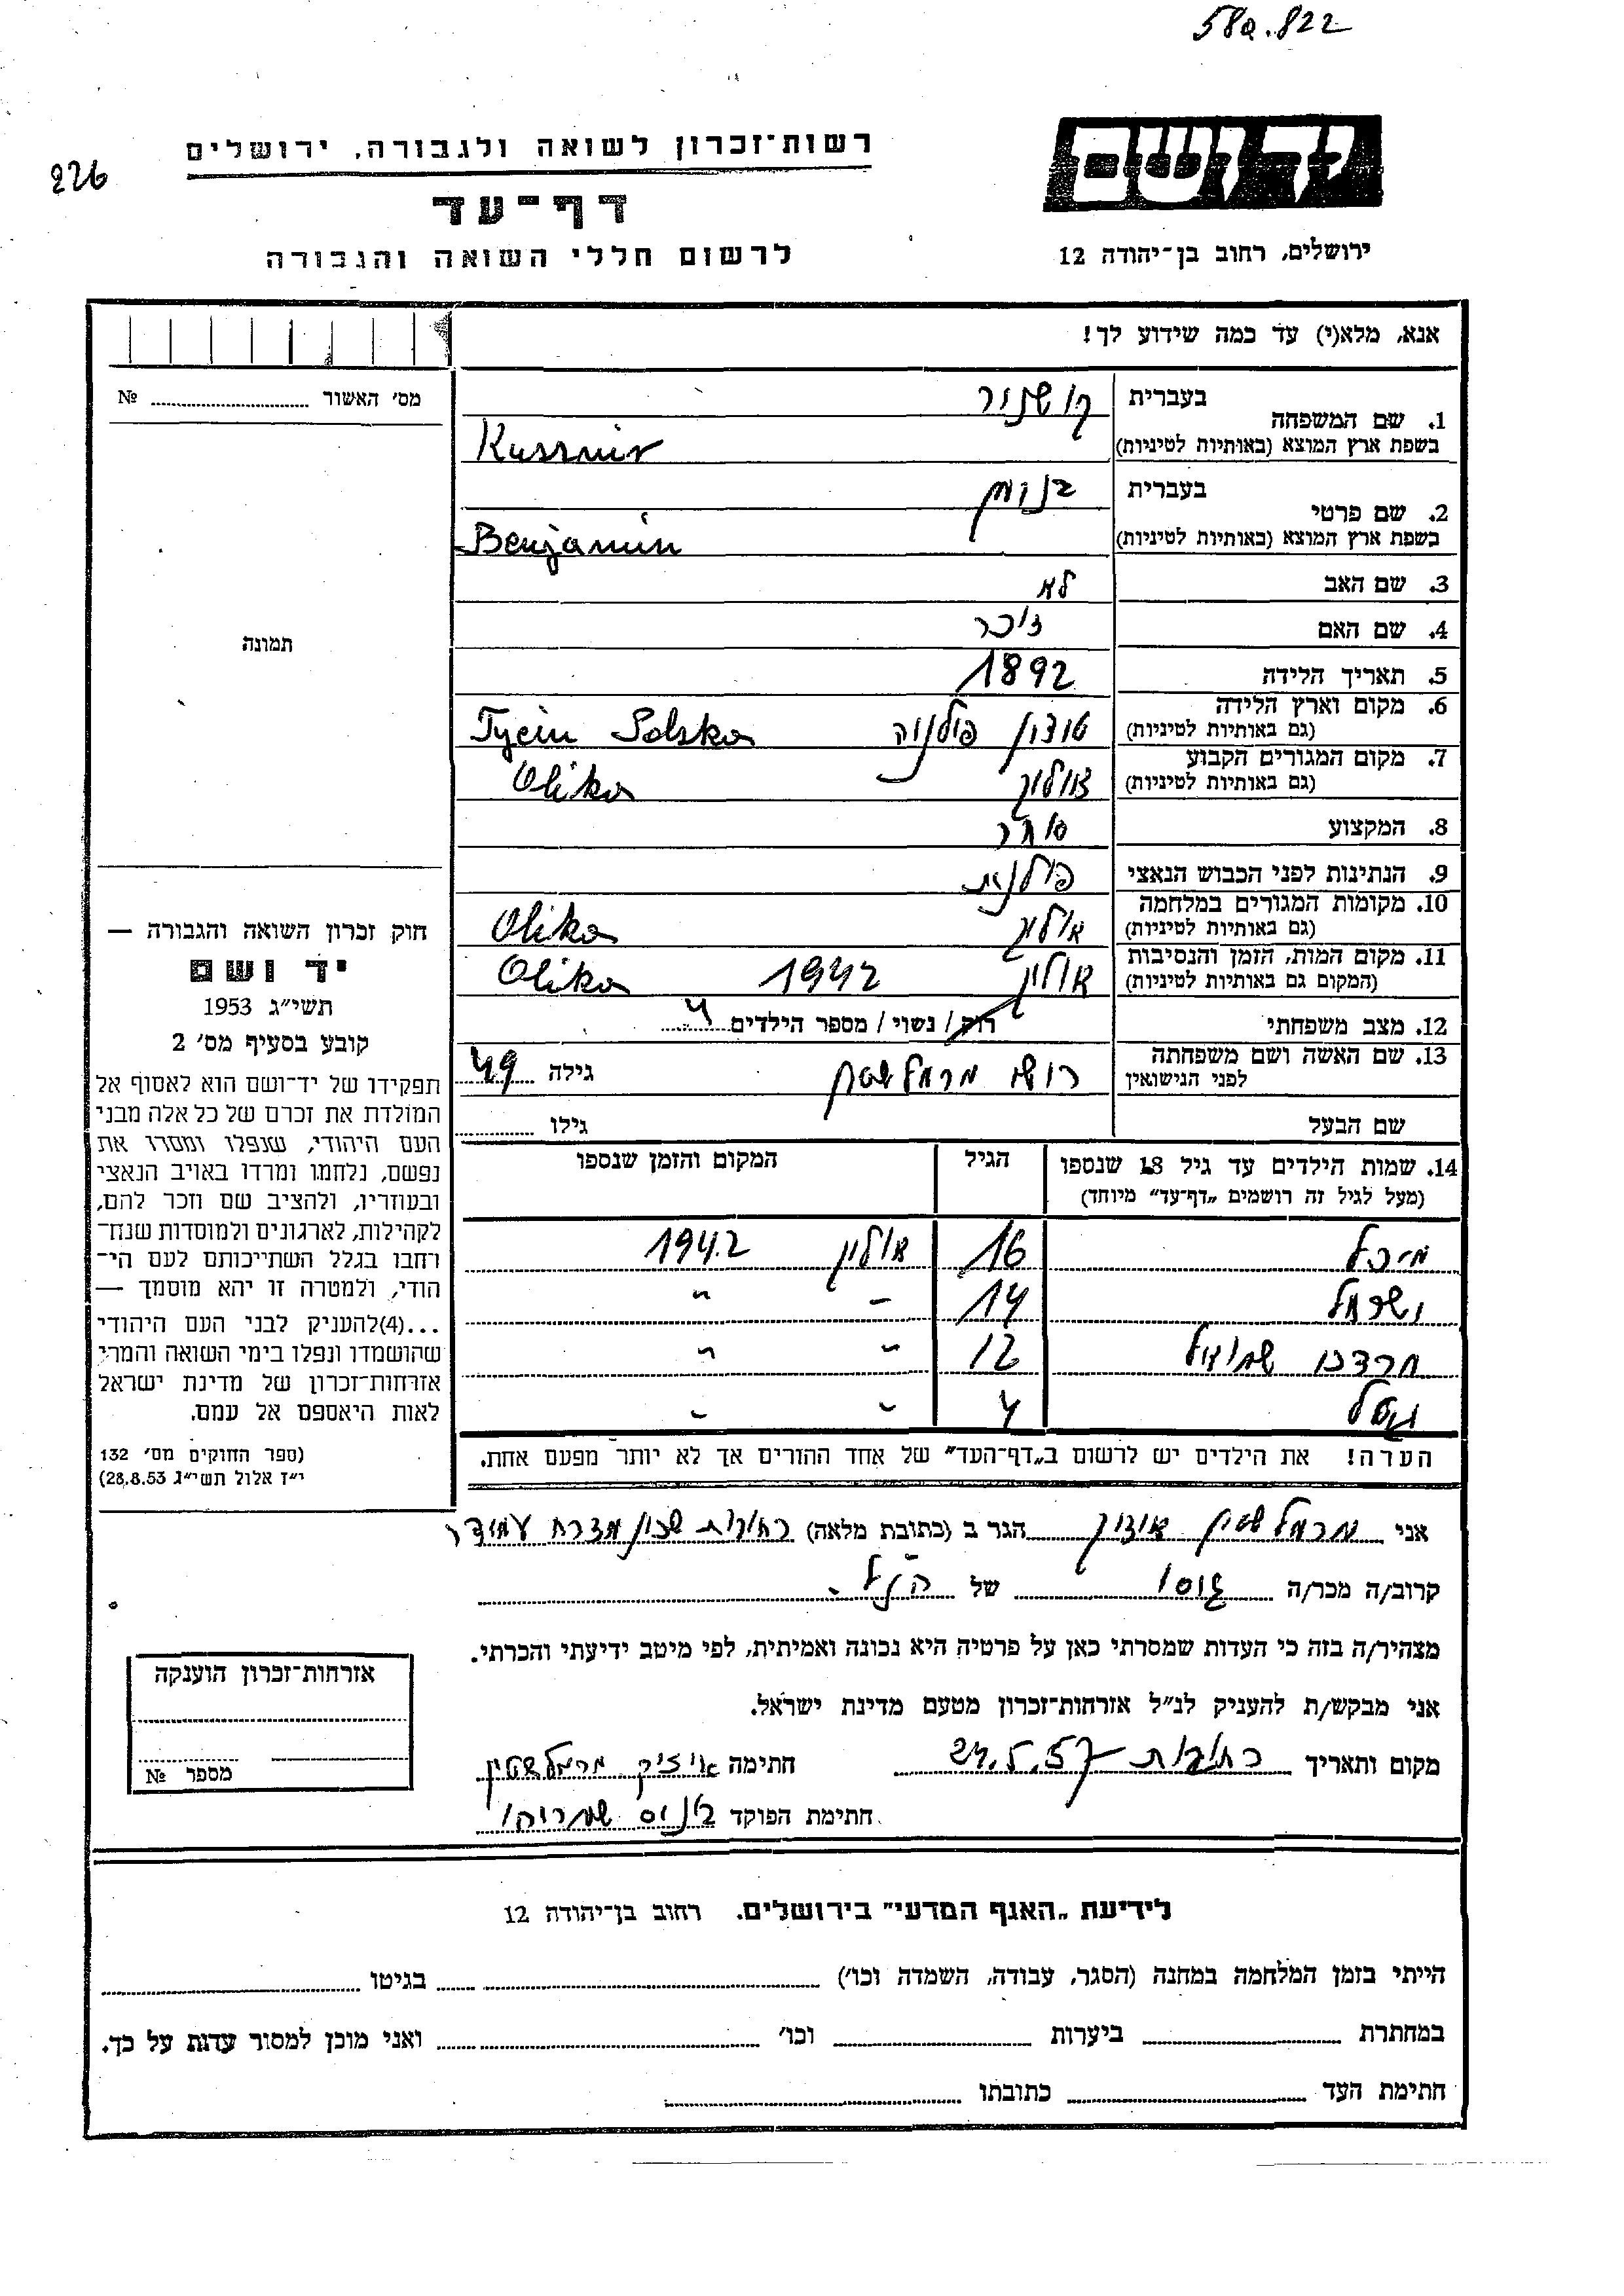 58a.822
226
רשות־זכרון לשואה ולגבורה, ירושלים
דף־עד
לרשום חללי השואה והגבורה
יד ושם
ירושלים, רחוב בן־יהודה 12
אנא, מלא(י) עד כמה שידוע לך!
מס׳ האשור № 
תמונה
חוק זכרון השואה והגבורה —
יד ושם
תשי״ג 1953
קובע בסעיף מס׳ 2
תפקידו של יד־ושם הוא לאסוף אל
המולדת את זכרם של כל אלה מבני
העם היהודי, שנפלו ומסרו את
נפשם, נלחמו ומרדו באויב הנאצי
ובעוזריו, ולהציב שם וזכר להם,
לקהילות, לארגונים ולמוסדות שנח־
רבו בגלל השתייכותם לעם הי־
הודי, ולמטרה זו יהא מוסמך —
...(4)להעניק לבני העם היהודי
שהושמדו ונפלו בימי השואה והמרי
אזרחות־זכרון של מדינת ישראל
לאות היאספם אל עמם.
(ספר החוקים מס׳ 132
י״ז אלול תשי״ג 28.8.53)
1. שם המשפחה בעברית קושניר
בשפת ארץ המוצא (באותיות לטיניות) Kusznir
2. שם פרטי בעברית בנימין
בשפת ארץ המוצא (באותיות לטיניות) Benjamin
3. שם האב לא
4. שם האם זיכר
5. תאריך הלידה 1892
6. מקום וארץ הלידה
(גם באותיות לטיניות) פולניה Polska
7. מקום המגורים הקבוע
(גם באותיות לטיניות) Olika
8. המקצוע סוחר
9. הנתינות לפני הכבוש הנאצי פולנית
10. מקומות המגורים במלחמה
(גם באותיות לטיניות) אוליק Olika
11. מקום המות, הזמן והנסיבות
(המקום גם באותיות לטיניות) אוליק 1942 Olika
12. מצב משפחתי רוק / נשוי / מספר הילדים 4
13. שם האשה ושם משפחתה
לפני הנישואין מרמלשטין גילה 49
שם הבעל גילו
14. שמות הילדים עד גיל 18 שנספו הגיל המקום והזמן שנספו
(מעל לגיל זה רושמים „דף־עד״ מיוחד)
מיכל 16 אוליק 1942
ישראל 14 – "
מרדכי שמואל 12 " "
4 " "
הערה! את הילדים יש לרשום ב„דף־העד״ של אחד ההורים אך לא יותר מפעם אחת.
אני מרמלשטין איציק הגר ב (כתובת מלאה) רחובות שכון מזרח עמידר
קרוב/ה מכר/ה גיסו של הנ״ל
מצהיר/ה בזה כי העדות שמסרתי כאן על פרטיה היא נכונה ואמיתית, לפי מיטב ידיעתי והכרתי.
אני מבקש/ת להעניק לנ״ל אזרחות־זכרון מטעם מדינת ישראל.
מקום ותאריך רחובות 24.5.57 חתימה איציק מרמלשטין
חתימת הפוקד שמריהו
אזרחות־זכרון הוענקה
מספר №
לידיעת „האגף המדעי״ בירושלים. רחוב בן־יהודה 12
הייתי בזמן המלחמה במחנה (הסגר, עבודה, השמדה וכו׳) בגיטו
במחתרת ביערות וכו׳ ואני מוכן למסור עדות על כך.
חתימת העד כתובתו